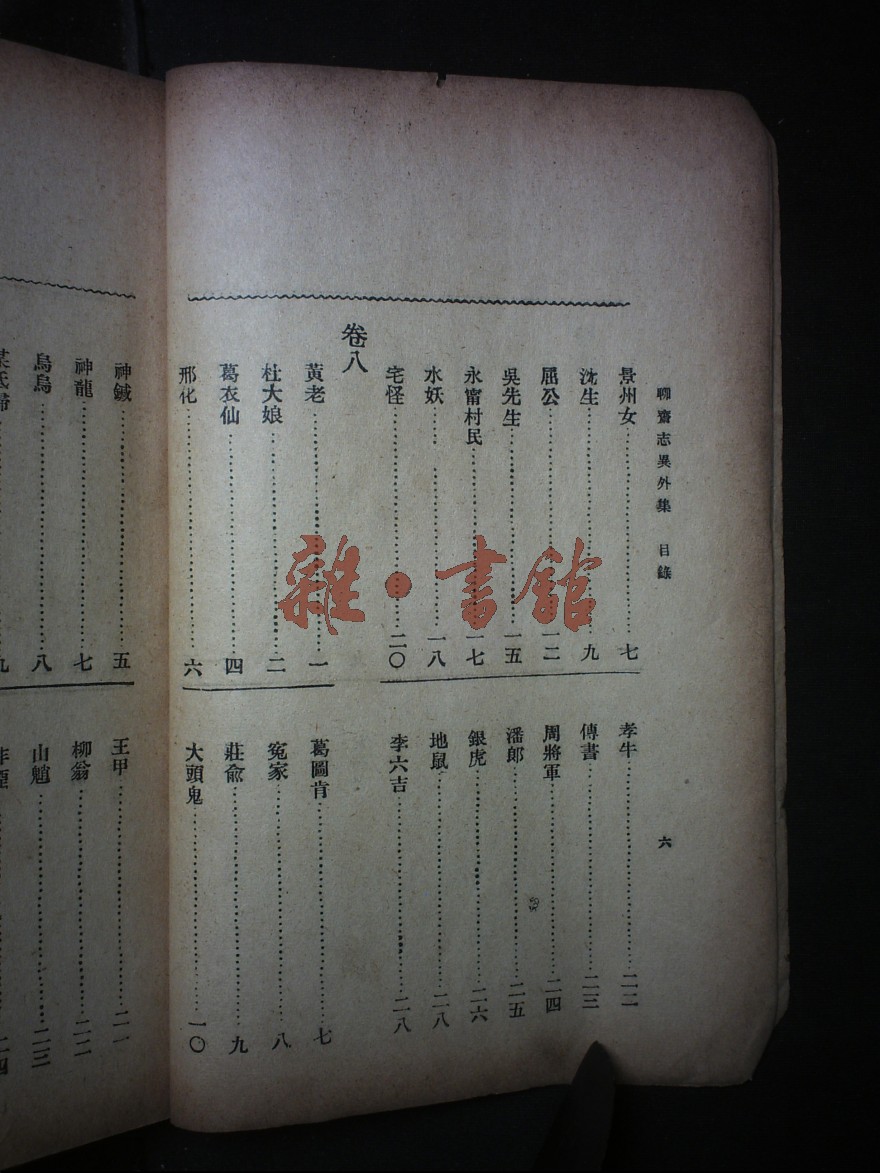 聊齋志異外集 目錄 六
景州女⋯⋯七
沈生⋯⋯九
屈公⋯⋯一二
吳先生⋯⋯一五
永甯村民⋯⋯一七
水妖⋯⋯一八
宅怪⋯⋯二〇
孝牛⋯⋯二二
傳書⋯⋯二三
周將軍⋯⋯二四
潘郎⋯⋯二五
銀虎⋯⋯二六
地鼠⋯⋯二八
李六吉⋯⋯二八
卷八
黃老⋯⋯一
杜大娘⋯⋯二
葛衣仙⋯⋯四
邢化⋯⋯六
葛圖肯⋯⋯七
冤家⋯⋯八
莊俞⋯⋯九
大頭鬼⋯⋯一〇
神鍼⋯⋯五
神龍⋯⋯七
烏烏⋯⋯八
王甲⋯⋯二一
柳翁⋯⋯二二
山魈⋯⋯二三
雜·書館